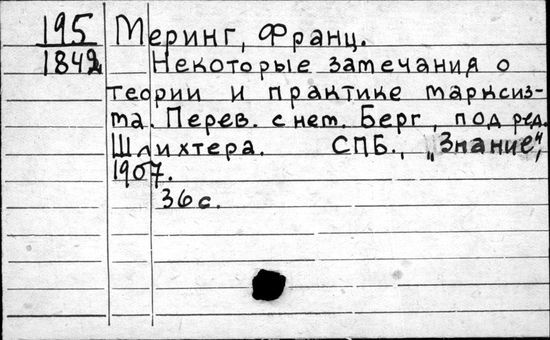 195 Меринг, Франц.
1842 Некоторые замечания о
теории и практике марксиз-
ма. Перев. с нем. Берг, под ред.
Шлихтера. СПБ., „Знание",
1907.
36 с.